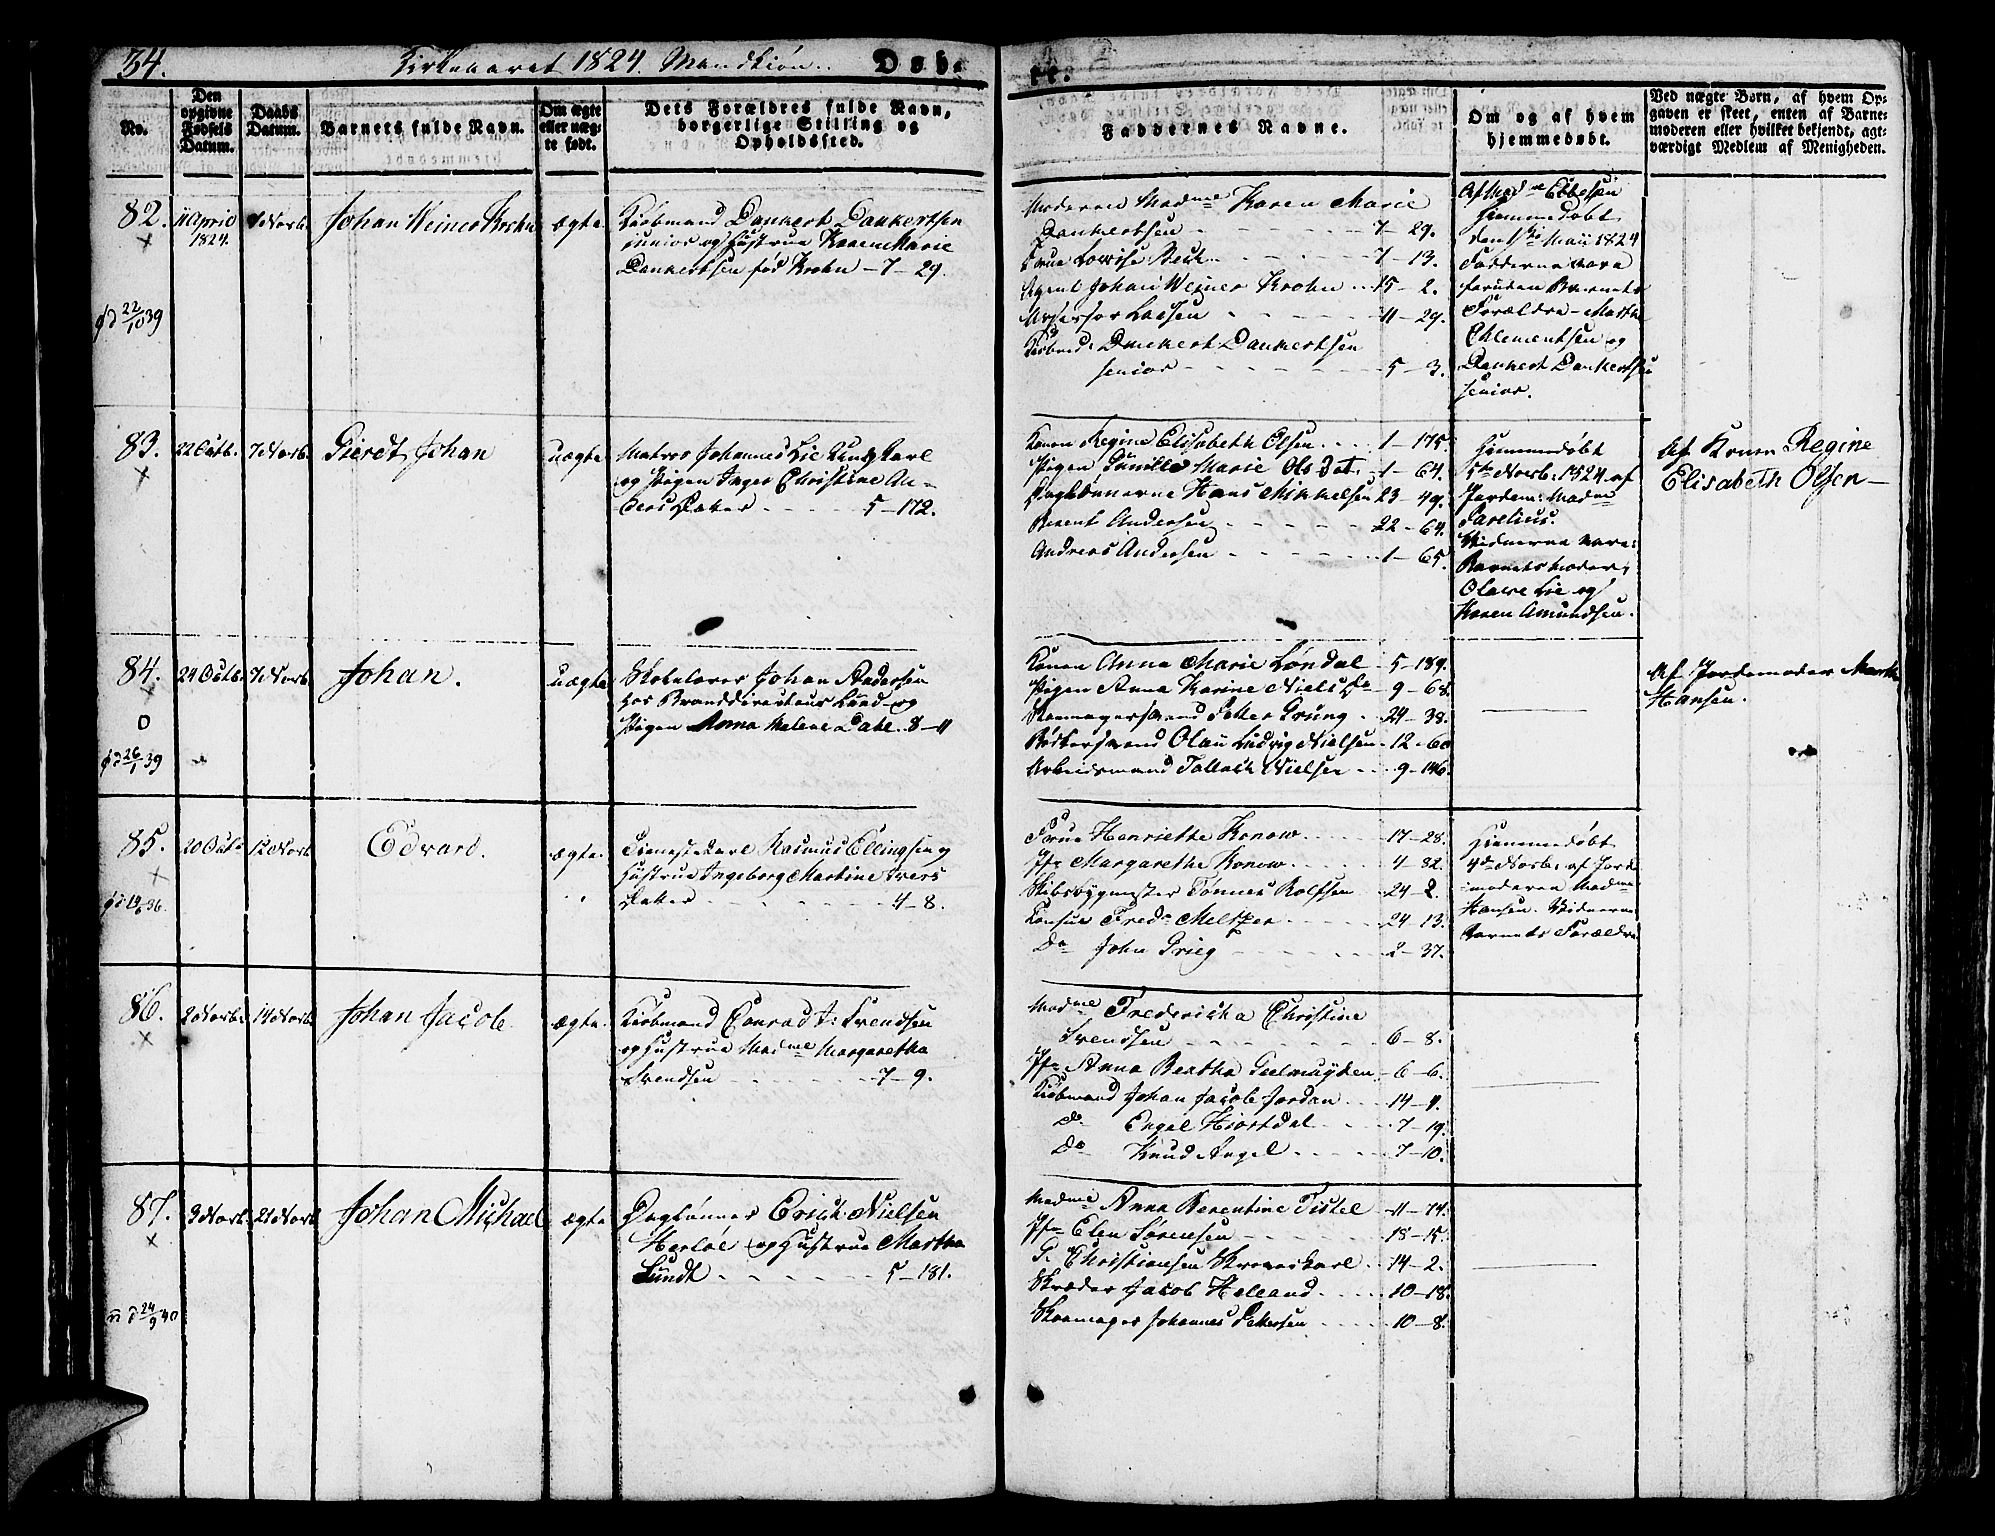 34. Kirkeaaret 1824. Mandkiön. Døb-
te.
No.
Den opgivne Fødsels Datum.
Daabs Datum.
Barnets fulde Navn.
Om ægte eller uæg- te født.
Dets Forældres fulde Navn, borgerlige Stilling og Opholdssted.
Faddernes Navne.
Om og af hvem hjemmedøbt.
Ved uægte Børn, af hvem Op-
gaven er skeet, enten af Barne-
moderen eller hvilket bekjendt, agt-
værdigt Medlem af Menigheden.
82. 11 April 1824. Novb. Johan Weiner Krohn ægte
Kiöbmand Dankert Dankertsen
junior og Hustrue Karen Marie
Dankertsen fød Krohn – 7 – 29.
Moderen Madme Karen Marie
Dankertsen - - - 7 – 29.
Frue Lovise Beck - - - 7 – 13.
Agent Johan Weiner Krohn - - 15 – 2.
Assessor Lassen - - - 11 – 29.
Kiöbmd. Dankert Dankertsen
senior - - - 5 – 3.
Af Madme Ebbesen
hiemmedøbt
den Maii 1824
Fadderne vare
foruden Barnets
Forældre – Marthe
Chlementsen og
Dankert Dankertsen
senior.
22/10 39
83. 22 Octb. 7 Novb. Gierdt Johan uægte
Matros Johannes Lie Ungkarl
og Pigen Inger Christine An-
ders Datter - - - 5 – 172.
Konen Regine Elisabeth Olsen - - 1 – 175.
Pigen Gunilde Marie Ols Dat. - 1 – 64.
Daglønnerne Hans Mikkelsen 23 – 49.
Berent Andersen - - - 22 – 64.
Andreas Andersen - - - 1 – 65.
Hiemmedøbt
5te Novb. 1824 af
Jordem: Madme
Vidnerne vare:
Barnets Moder,
Olave Lie og
Karen Amundsen.
Af Konen Regine
Elisabeth Olsen –
84. 24 Octb. 7 Novb. Johan. uægte
Johan Andersen
hos Branddirecteur Lund og
Pigen Anna Malene Dahl. 8 – 11
Konen Anna Marie Løndal - 5 – 189.
Pigen Anna Karine Niels Da - 9 – 68.
Skomagersvend Petter Grung - 24 – 38.
Bødkersvend Olau Ludvig Nielsen - 12 – 60
Arbeidsmand Tollach Nielsen - - 9 – 146.
Af Jordemoder Marthe
Hansen.
26/1 39
85. 20 Octb. 12 Novb. Edvard. ægte.
Tienestekarl Rasmus Ellingsen og
Hustrue Ingeborg Martine Ivers
Datter - - - 4 – 8.
Frue Henriette Konow - - - 17 – 28.
Jfr Margarethe Konow - - - 4 – 32.
Skibsbygmester Tönnes Rolfsen - 24 – 2.
Consul Fredr Meltzer - - - 24 – 13.
Do John Grieg - - - 2 – 37.
Hiemmedøbt
4de Novb. af Jorde
moderen Madme
Hansen. Vidnerne
Barnets Forældre
36.
86. 2 Novb. 14 Novb. Johan Jacob ægte.
Kiöbmand Conrad J: Svendsen
og Hustrue Madme Margaretha
Svendsen - - - 7 – 9.
Madme Fredericha Christine
Svendsen - - - 6 – 8.
Jfr Anna Bertha Geelmuyden - 6 – 6.
Kiöbmand Johan Jacob Jordan - - 14 –
do Engel Hiortdal - - - 7 – 19.
Do Knud Angel - - - 7 – 10.
87. 3 Novb. 21 Novb. Johan Michael ægte
Daglønner Erich Nielsen
Herløe og Hustrue Martha
Lundt - - - 5 – 181.
Madme Anna Berentine Tistel - 11 – 74.
Jfr Elen Sørensen - - - 18 – 15.
G. Christiansen - 14 – 2.
Skræder Jacob Helland - - - 10 – 18.
Skomager Johannes Pettersen - - - 10 – 8.
24/9 40